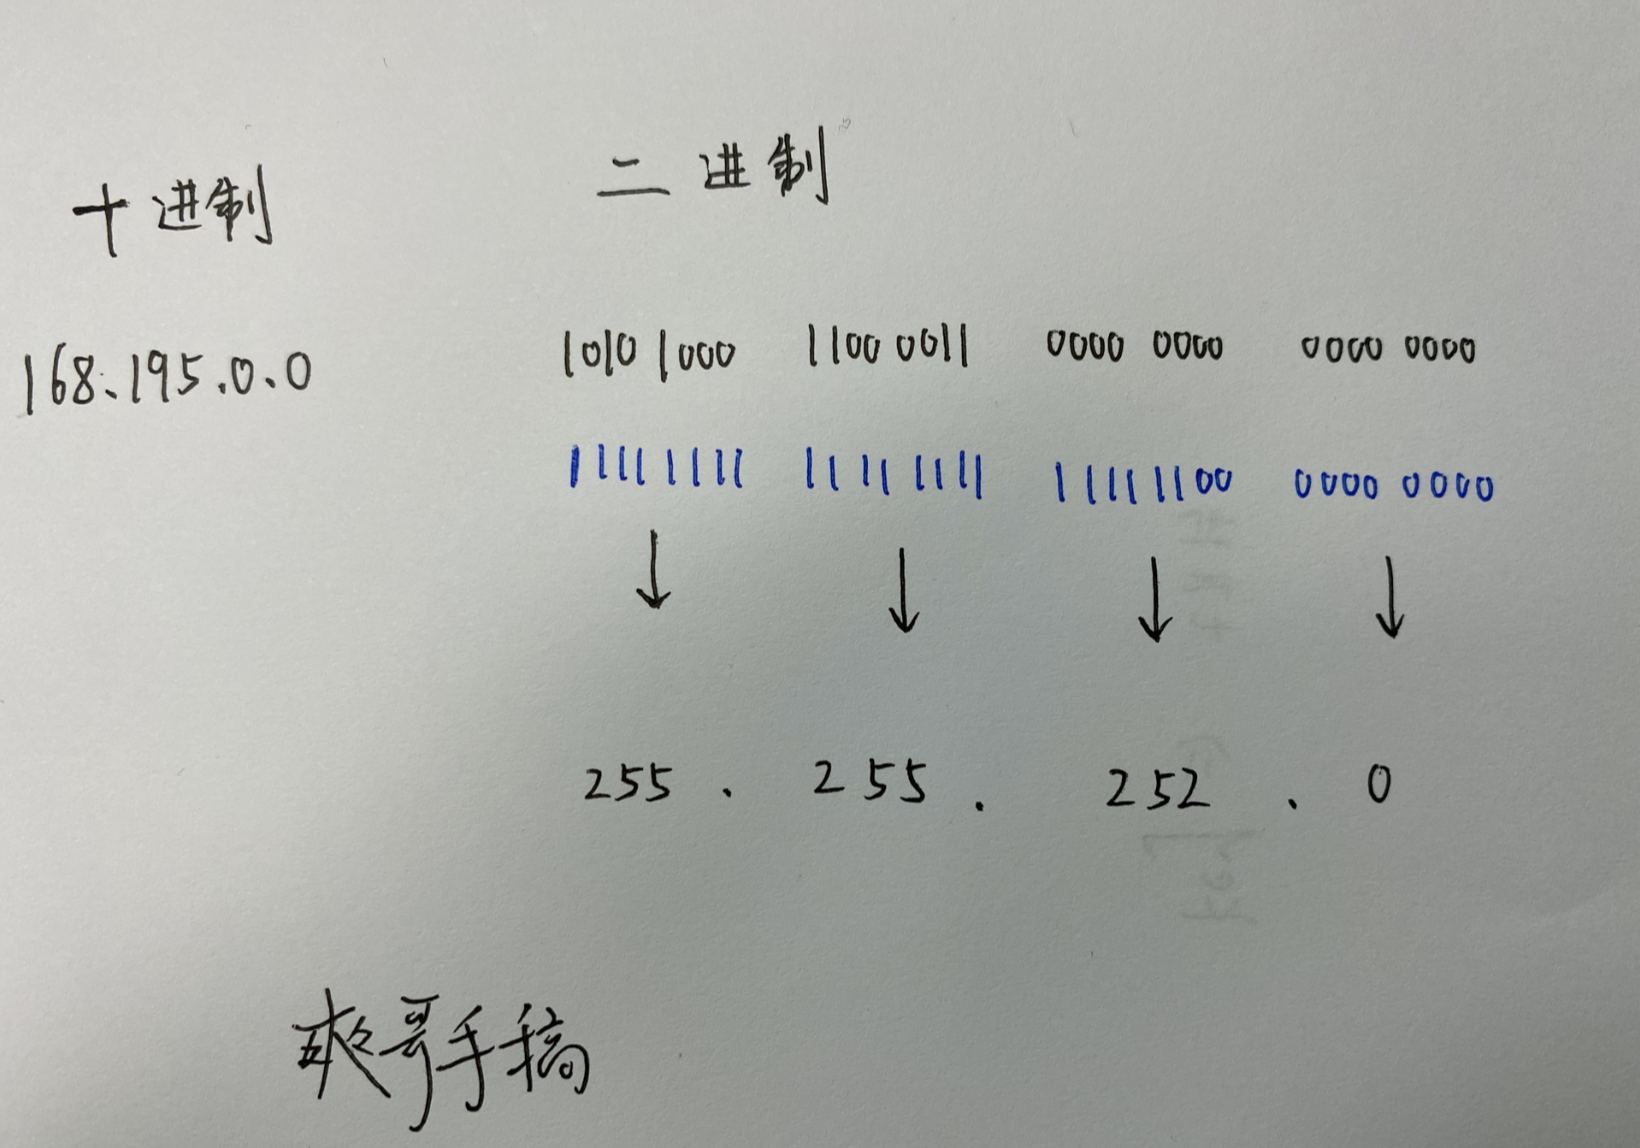 十进制 二进制
168.195.0.0 1010 1000 1100 0011 0000 0000 0000 0000
11111111 1111 1111 11111100 0000 0000
255 . 255 . 252 . 0
爽哥手稿